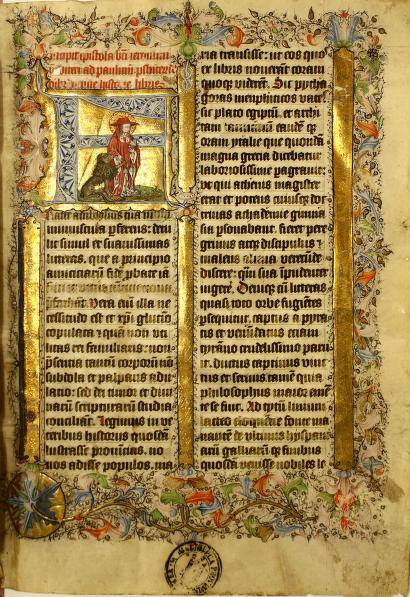 ncipit epistola bti iheronimi
ad paulinū
Rater ambrosius tua michi
munuscula pferens: detu
lit simul et suauissimas
litteras. que a principio
amiciciarū fidē pbate iā
fidei
pferebāt. Vera eni illa ne
cessitudo est et xpi glutino
copulata: quā non vti
litas rei familiaris: non
pñtia tantū corporum nō
subdola et palpans adu
latio: sed dei timor et diui
narū scripturarū studia
conciliāt. Legimus in ve
teribus historijs quosdā
lustrasse prouincias. no
uos adisse populos. ma
ria transisse: ut eos quos
ex libris nouerāt coram
quoqz viderēt. Sic pytha
goras memphiticos vates
sic plato egiptū et archi
tam tarentinū eandēqz
oram ytalie que quondā
magna grecia dicebatur
laboriosissime pagrauit:
ut qui athenis magister
erat et potens cuiusqz doc
trinas achademie gimna
sia psonabant. fieret pere
grinus atqz discipulus
malens aliena verecūde
discere: quā sua īpudenter
ingere. Deniqz cū litteras
quasi toto orbe fugiētes
psequitur. captus a pyra
tis et venūdatus eciam
tyrāno crudelissimo paru
it. ductus captiuus vinc
tus et seruus tamē quia
philosophus maior emē
te se fuit. Ad tytū liuium
lacteo eloquētie fonte ma
nantē de vltimis hyspanie
galliarūqz finibus
quosdā venisse nobiles le